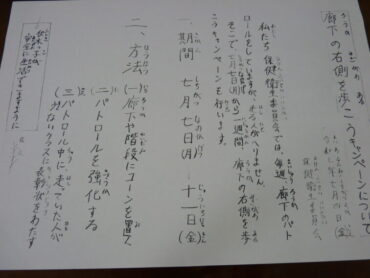 廊下の右側を歩こうキャンペーンについて
七月四日(金)
保健衛生委員会
私たち保健衛生委員会では、毎週、廊下のパト
ロールをしていますが、走る人がへりません。
そこで、七月七日(月)から一週間、廊下の右側を歩
こうキャンペーンを行います。
一、期間 七月七日(月)―十一日(金)
二、方法 (一)廊下や階段にコーンを置く
(二)パトロールを強化する
(三)パトロール中に走っていた人が
少ないクラスに表彰状をわたす
安全に生活できますように